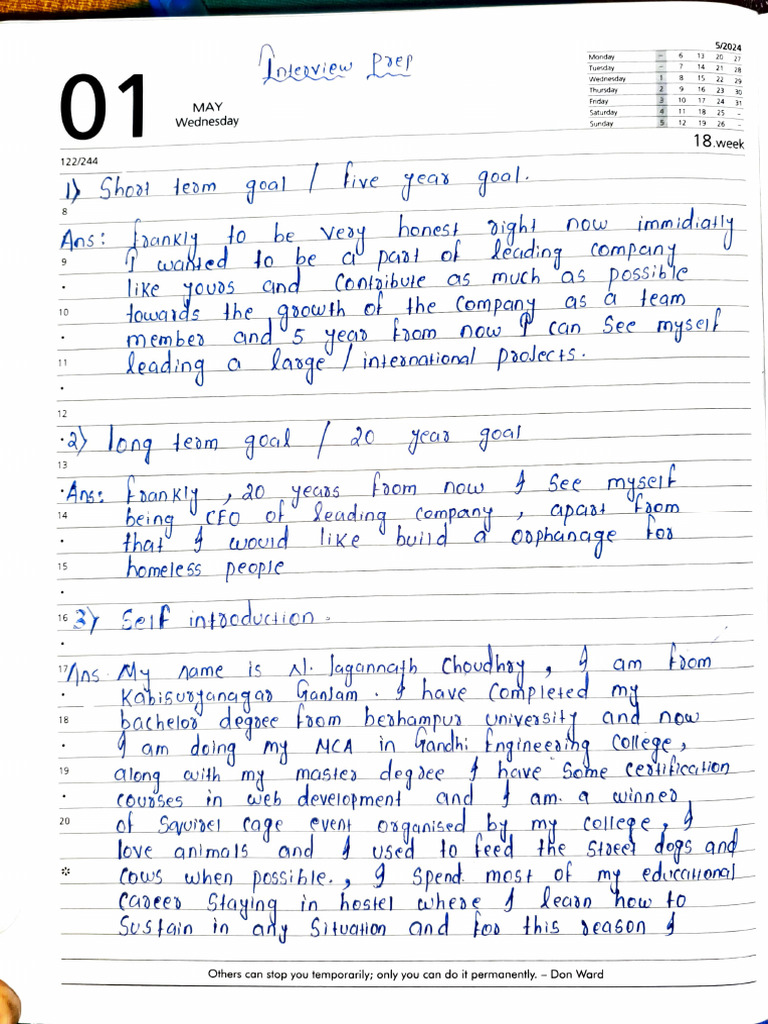 Interview Prep
5/2024
Monday - 6 13 20 27
Tuesday - 7 14 21 28
Wednesday 1 8 15 22 29
Thursday 2 9 16 23 30
Friday 3 10 17 24 31
Saturday 4 11 18 25 -
Sunday 5 12 19 26 -
01
MAY
Wednesday
18.week
122/244
1) Short term goal / five year goal.
8
Ans: frankly to be very honest right now immidiatly
9 I wanted to be a part of leading company
like yours and contribute as much as possible
10 towards the growth of the company as a team
member and 5 year from now I can see myself
11 leading a large / international projects.
12
2) long term goal / 20 year goal
13
Ans: frankly, 20 years from now I see myself
14 being CEO of leading company, apart from
that I would like build a orphanage for
15 homeless people
16 3) Self introduction.
17 Ans My name is N. Jagannath Choudhry, I am from
Kabisuryanagar Ganjam. I have completed my
18 bachelor degree from berhampur university and now
I am doing my MCA in Gandhi Engineering college,
19 along with my master degree I have some certification
courses in web development and I am a winner
20 of Squirel cage event organised by my college, I
love animals and I used to feed the street dogs and
* cows when possible., I spend most of my educational
career staying in hostel where I learn how to
sustain in any situation and for this reason I
Others can stop you temporarily; only you can do it permanently. – Don Ward